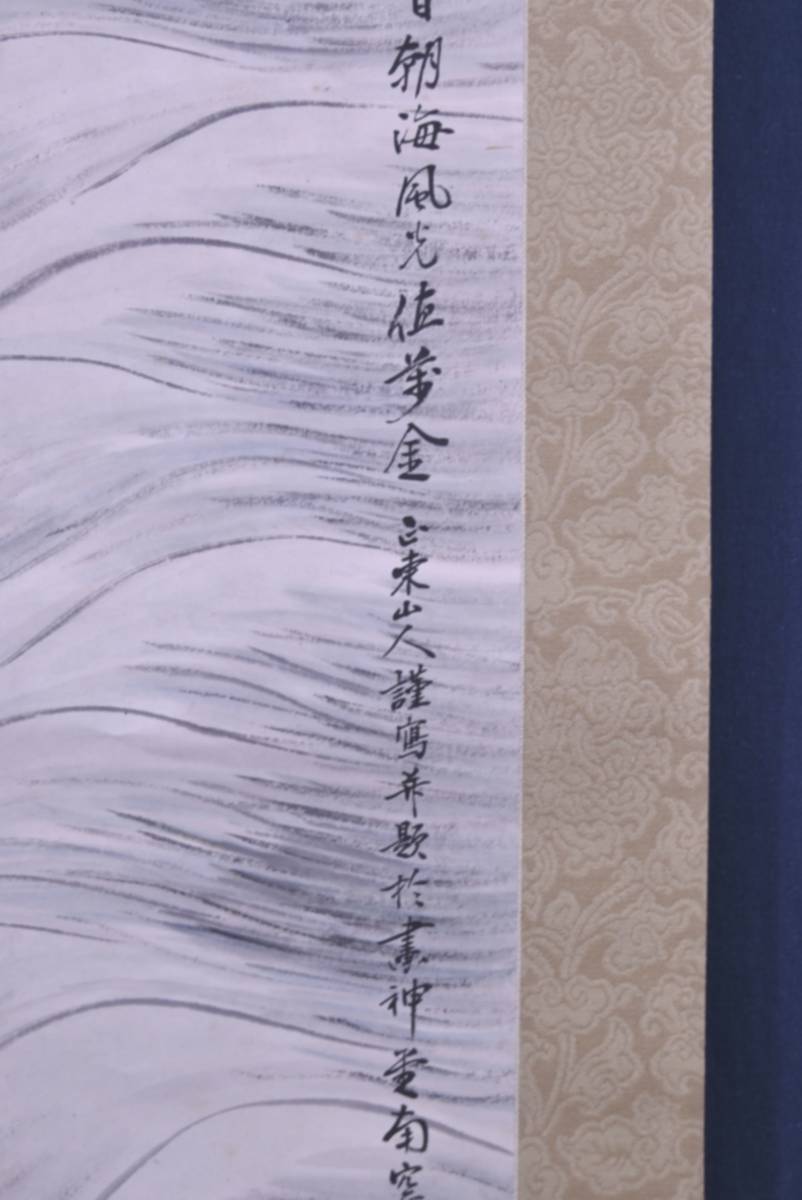 朝海風光値萬金 正東山人謹寫并題於畫神堂南窓